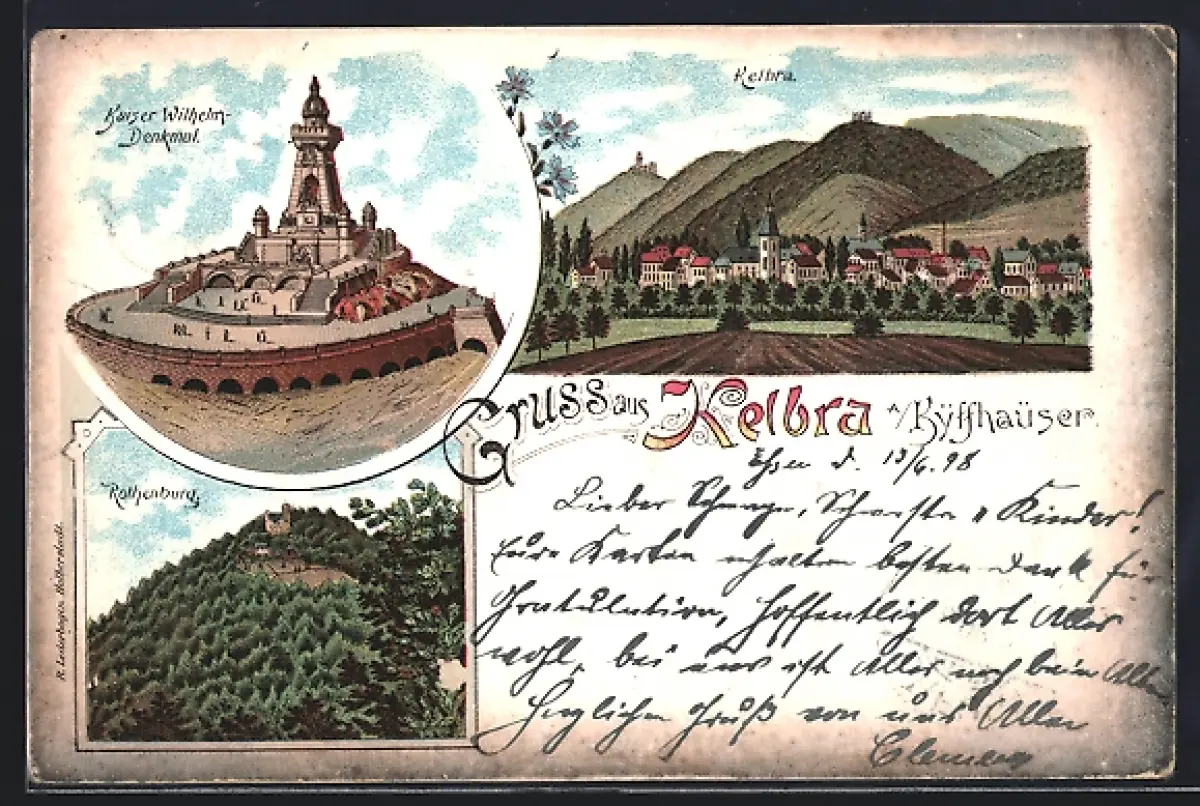 Kaiser Wilhelm-
Denkmal.
Kelbra.
Gruss aus Kelbra a/Kÿffhaüser.
Rothenburg.
R. Lederbogen Halberstadt.
d. 13/6.98
Lieber Schwager, Schwester u Kinder!
Eure Karten erhalten besten Dank für
Gratulation, hoffentlich dort Alles
wohl, bei uns ist Alles noch beim Alten
Herzlichen Gruß von uns Allen
Clemens